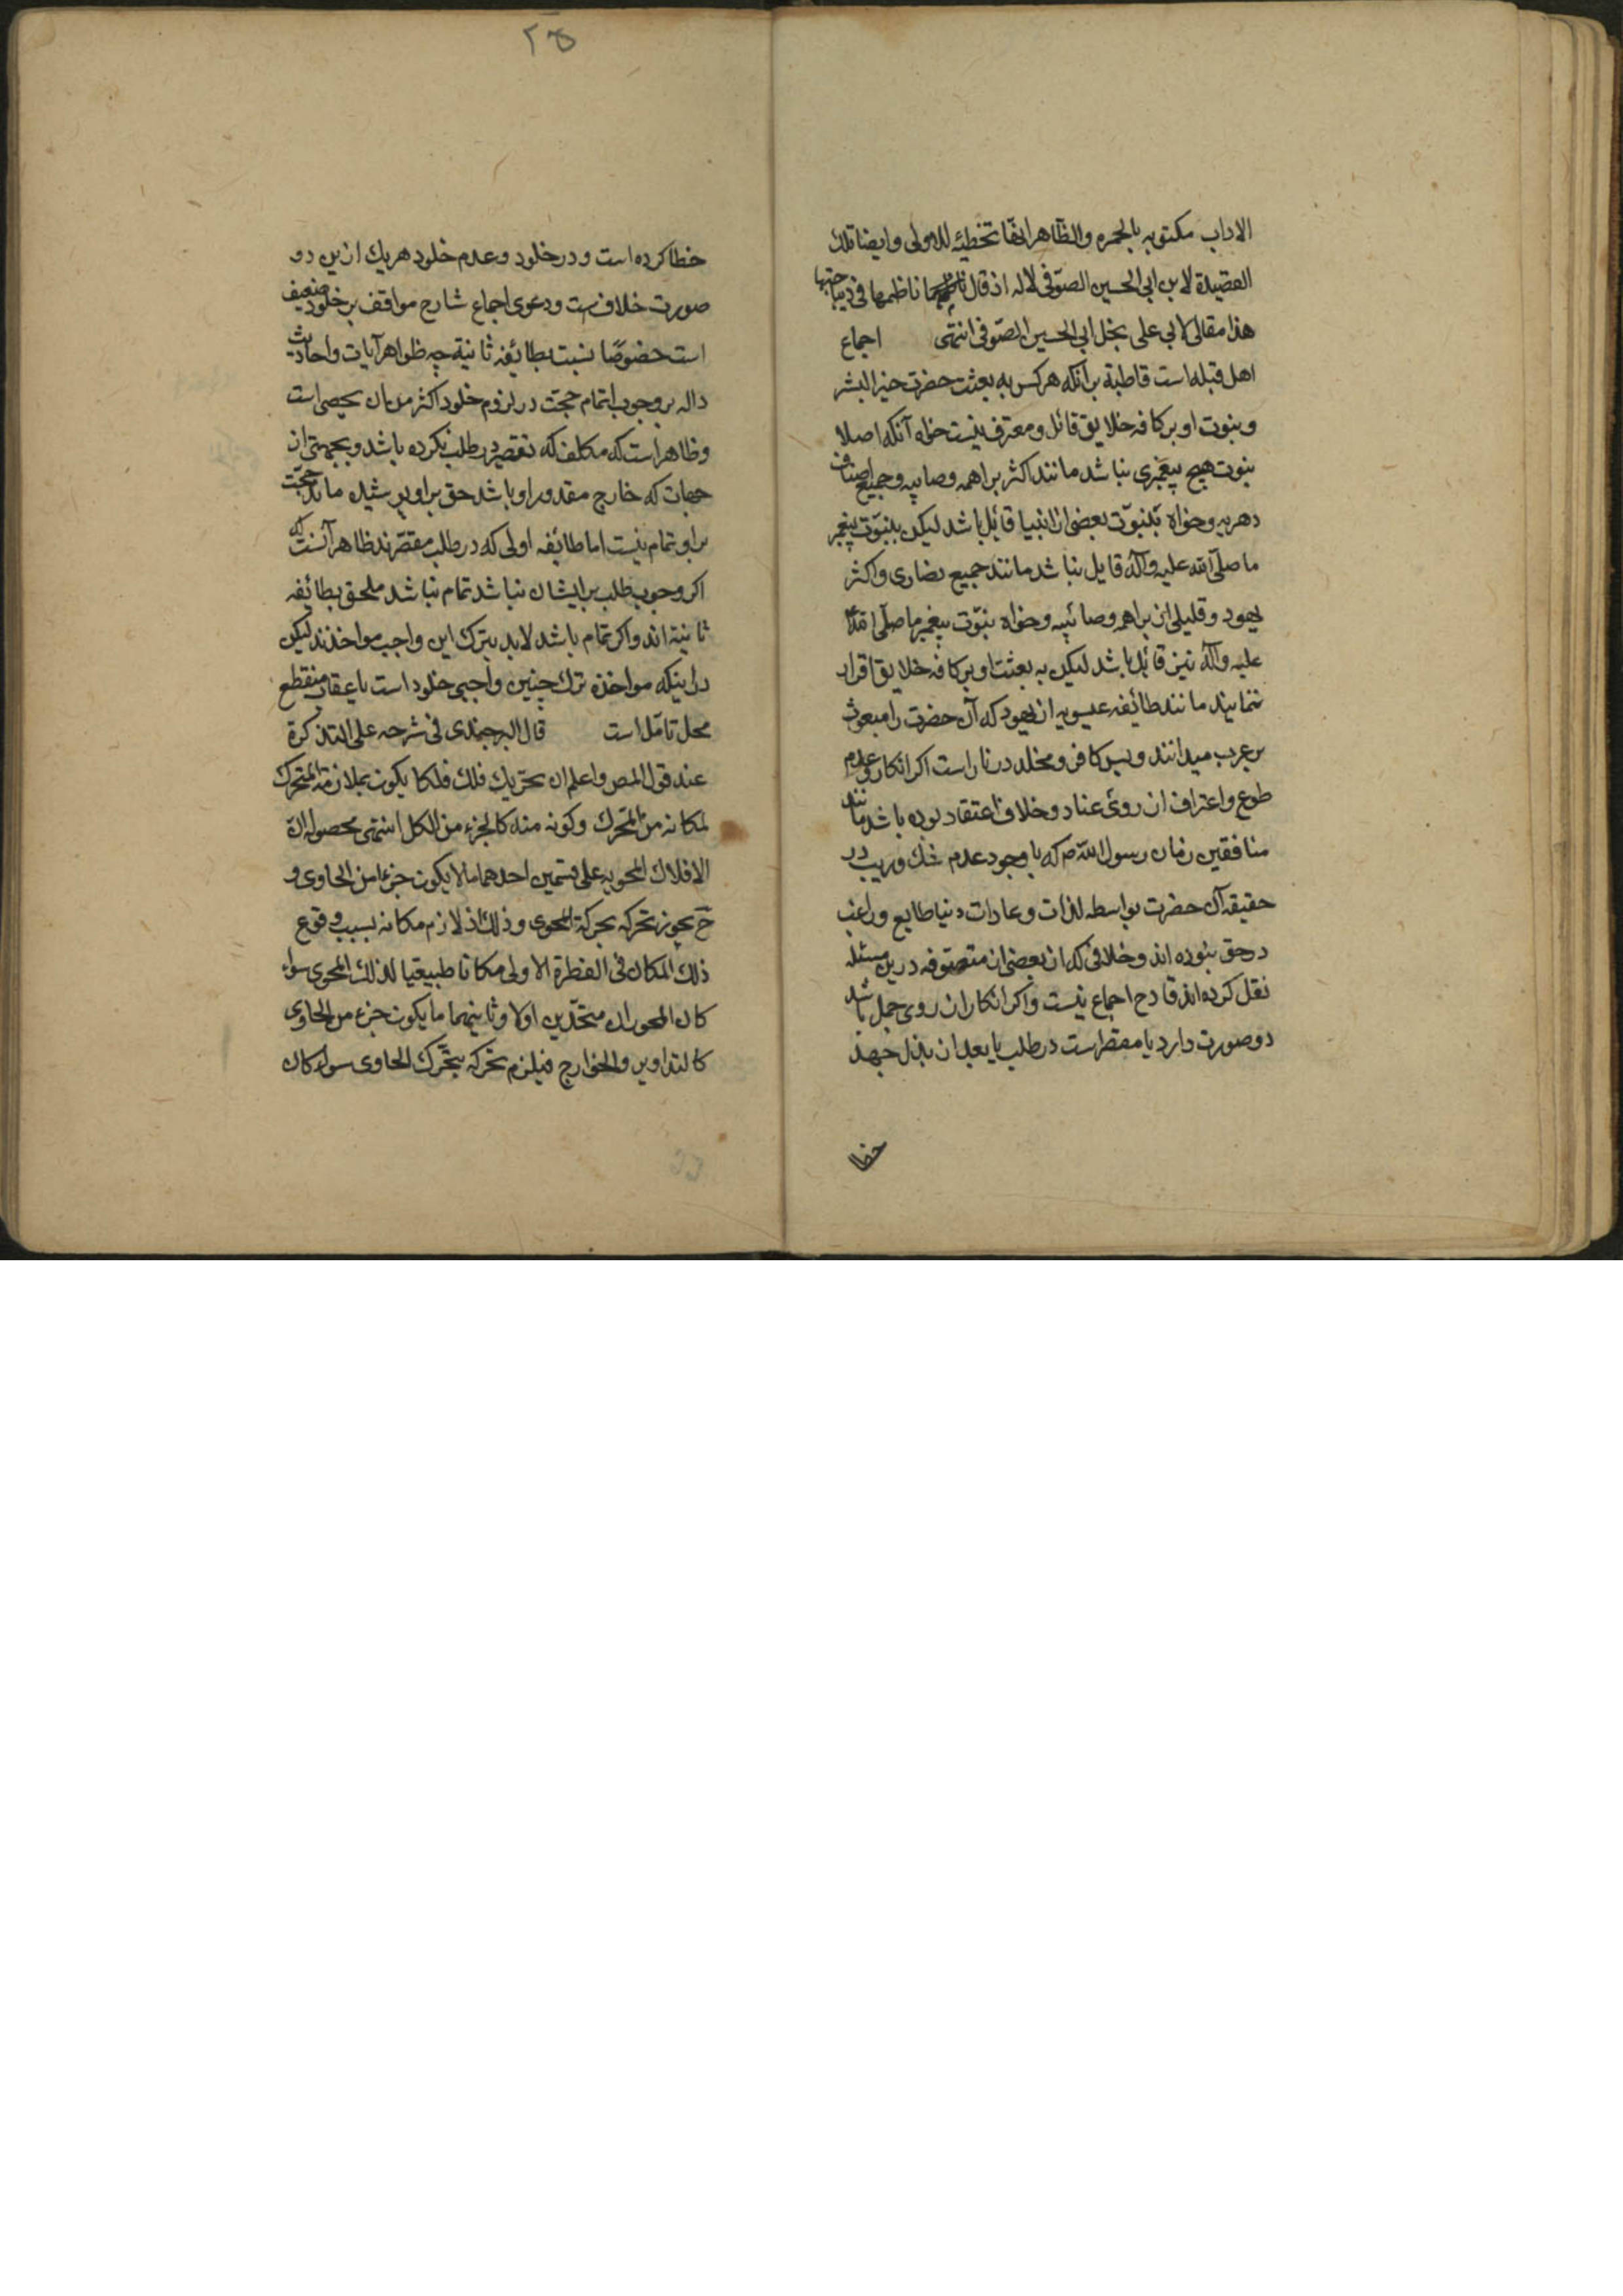 الاداب مكتوبه بالحمره والظاهر انها تخطئه للاولى وايضا تلك
القصيدة لابن ابى الحسين الصوفى لا له اذ قال ناظمها فى ديباجتها
هذا مقال لابى على نجل ابى الحسين الصوفى انتهى اجماع
اهل قبله است قاطبة برآنكه هركس به بعثت حضرت خير البشر
و بنوت او بر كافه خلايق قائل و معترف نيست خواه آنكه اصلا
بنوت هيچ پيغمبرى نباشد مانند اكثر براهمه وصابيه وجميع اصناف
دهريه وخواه بنبوّت بعضى از انبيا قائل باشد ليكن بنبوّت پيغمبر
ما صلّى الله عليه وآله قايل نباشد مانند جميع نصارى واكثر
يهود وقليلى از براهمه وصائبيه وخواه بنبوّت پيغمبر ما صلّى الله
عليه وآله نيز قائل باشد ليكن به بعثت او بر كافه خلايق اقرار
ننمايند مانند طائفه عيسويه از يهود كه آن حضرت را مبعوث
بر عرب ميدانند وبس كافر ومخلد در نار است اكر انكار وعدم
طوع واعتراف از روى عناد وخلاف اعتقاد بوده باشد مانند
منافقين زمان رسول الله ص كه باوجود عدم شك وريب در
حقيقه آن حضرت بواسطه لذات وعادات دنيا طايع وراغب
در حق نبوده اند وخلافى كه از بعضى از متصوفه در ين مسئله
نقل كرده اند قادح اجماع نيست واكر انكار از روى جهل باشد
دو صورت دارد يا مقصر است در طلب يا بعد از بذل جهد
خطا
٢٥
خطا كرده است ودر خلود وعدم خلود هريك ازين دو
صورت خلافست ودعوى اجماع شارح مواقف بر خلود ضعيف
است خصوصًا نسبت بطائفه ثانية چه ظواهر آيات واحاديث
داله بر وجوب اتمام حجت در لزوم خلود اكثر من ان يحصى است
وظاهر است كه مكلف كه تقصير در طلب نكرده باشد وبجهتى از
جهات كه خارج مقدور او باشد حق بر او پوشيده ماند حجّت
بر او تمام نيست اما طائفه اولى كه در طلب مقصّرند ظاهر آنست كه
اكر وجوب طلب بر ايشان نباشد تمام نباشد ملحق بطائفه
ثانية اند واكر تمام باشد لابد بترك اين واجب مواخذند ليكن
در اينكه مواخذه ترك چنين واجبى خلود است يا عقاب منقطع
محل تامّل است قال البرجندى فى شرحه على التذكرة
عند قول المص واعلم ان تحريك فلك فلكا يكون بملازمة المتحرك
لمكانه من المتحرك وكونه منه كالجزء من الكل انتهى محصوله انّ
الافلاك المحويه على قسمين احدهما ما لا يكون جزءا من الحاوى و
ح يجوز تحركه بحركة المحوى وذلك اذ لازم مكانه بسبب وقوع
ذلك المكان فى الفطرة الاولى مكانا طبيعيا لذلك المحوى سواء
كان المحوران متحدين اولا وثانيهما ما يكون جزء من الحاوى
كالتداوير والخوارج فيلزم تحركه بتحرك الحاوى سواء كان